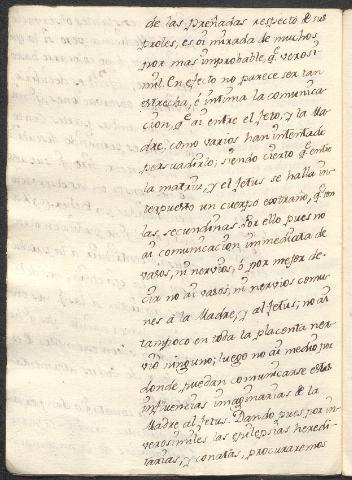 de las preñadas respecto de sus
proles, es oi mirada de muchos
por mas improbable, qe. verosi
mil. En efecto no parece ser tan
estrecha, é intima la comunica-
cion, qe. ai entre el feto, y la Ma-
dre, como varios han intentado
persuadirlo; siendo cierto qe. entre
la matriz, y el fetus se halla in-
terpuesto un cuerpo extraño, qe. son
las secundinas. Por ello pues no
ai comunicacion immediata de
vasos, ni nervios, ó por mejor de-
cir no ai vasos, ni nervios comu-
nes á la Madre, y al fetus; no ai
tampoco en toda la placenta ner-
vio ninguno; luego no ai medio por
donde puedan comunicarse estas
influencias imaginarias de la
Madre al fetus. Dando pues por in-
verosimiles las epilepsias heredi-
tarias, y conatas, procuraremos